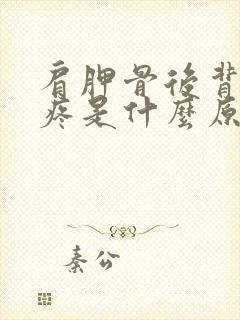 肩胛骨後背
疼是什麼原
秦公